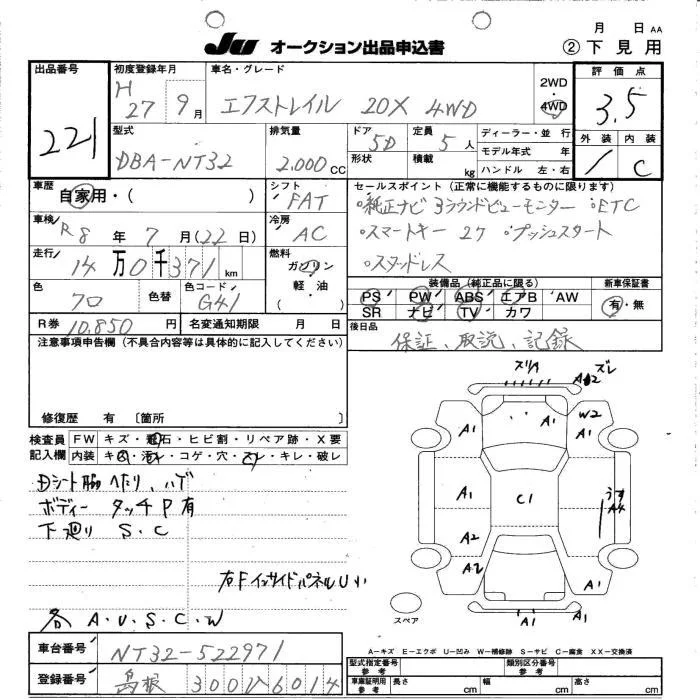 月 日 AA
JU オークション出品申込書 ②下見用
出品番号 221
初度登録年月 H 27 9月
車名・グレード エクストレイル 20X 4WD
2WD 4WD
評価点 3.5
外装 内装 C
型式 DBA-NT32
排気量 2.000 CC
ドア 5D 定員 5人
形状 積載 kg
ディーラー・並行
モデル年式 年
ハンドル 左・右
車歴 自家用・( )
シフト FAT
セールスポイント(正常に機能するものに限ります)
。純正ナビ ヨラウンドビューモニター 。ETC
。スマートキー 2ケ 。プッシュスタート
。スタッドレス
車検 R8年 7月(22日)
冷房 AC
走行 14万0千371km
燃料 ガソリン 軽油 ( )
色 70 色替 色コード G41
R券 10,850円 名変通知期限 月 日
装備品(純正品に限る)
PS PW ABS エアB AW
SR ナビ TV カワ
新車保証書 有・無
後日品 保証、取説、記録
注意事項申告欄(不具合内容等は具体的に記入してください)
修復歴 有〔箇所 〕
検査員記入欄
FW キズ・飛石・ヒビ割・リペア跡・X要
内装 キズ・汚レ・コゲ・穴・スレ・キレ・破レ
Dシート脇 へたり、ハゲ
ボディー タッチP有
下廻り S.C
右Fインサイドパネル U
各 A.U.S.C.W
スリA A2 ズレ
A1 A1 W2 A1
A1 C1 うす A4
A2
A2 A1
A1
スペア
A-キズ E-エクボ U-凹み W-補修跡 S-サビ C-腐食 XX-交換済
車台番号 NT32-522971
登録番号 島根 300 6014
型式指定番号 類別区分番号
車庫証明用 長さ cm 幅 cm 高さ cm